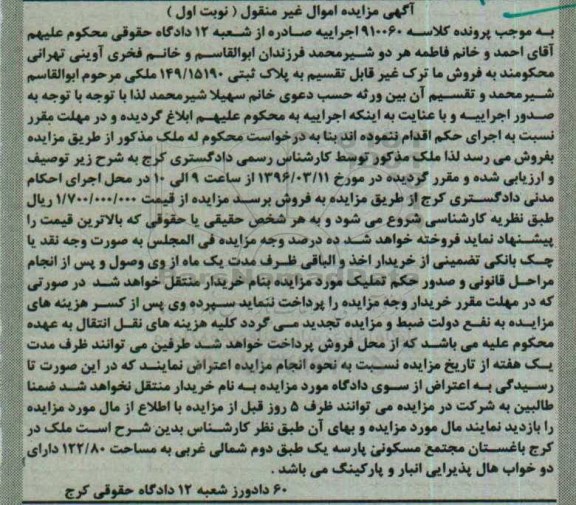 آگهی مزایده اموال غیر منقول ( نوبت اول )
به موجب پرونده کلاسه ۹۱۰۰۶۰ اجراییه صادره از شعبه ۱۲ دادگاه حقوقی محکوم علیهم
آقای احمد و خانم فاطمه هر دو شیرمحمد فرزندان ابوالقاسم و خانم فخری آوینی تهرانی
محکومند به فروش ما ترک غیر قابل تقسیم به پلاک ثبتی ۱۴۹/۱۵۱۹۰ ملکی مرحوم ابوالقاسم
شیرمحمد و تقسیم آن بین ورثه حسب دعوی خانم سهیلا شیرمحمد لذا با توجه با توجه به
صدور اجراییه و با عنایت به اینکه اجراییه به محکوم علیهم ابلاغ گردیده و در مهلت مقرر
نسبت به اجرای حکم اقدام ننموده اند بنا به درخواست محکوم له ملک مذکور از طریق مزایده
بفروش می رسد لذا ملک مذکور توسط کارشناس رسمی دادگستری کرج به شرح زیر توصیف
و ارزیابی شده و مقرر گردیده در مورخ ۱۳۹۶/۰۳/۱۱ از ساعت ۹ الی ۱۰ در محل اجرای احکام
مدنی دادگستری کرج از طریق مزایده به فروش برسد مزایده از قیمت ۱/۷۰۰/۰۰۰/۰۰۰ ریال
طبق نظریه کارشناسی شروع می شود و به هر شخص حقیقی یا حقوقی که بالاترین قیمت را
پیشنهاد نماید فروخته خواهد شد ده درصد وجه مزایده فی المجلس به صورت وجه نقد یا
چک بانکی تضمینی از خریدار اخذ و الباقی ظرف مدت یک ماه از وی وصول و پس از انجام
مراحل قانونی و صدور حکم تملیک مورد مزایده بنام خریدار منتقل خواهد شد در صورتی
که در مهلت مقرر خریدار وجه مزایده را پرداخت ننماید سپرده وی پس از کسر هزینه های
مزایده به نفع دولت ضبط و مزایده تجدید می گردد کلیه هزینه های نقل انتقال به عهده
محکوم علیه می باشد که از محل فروش پرداخت خواهد شد طرفین می توانند ظرف مدت
یک هفته از تاریخ مزایده نسبت به نحوه انجام مزایده اعتراض نمایند که در این صورت تا
رسیدگی به اعتراض از سوی دادگاه مورد مزایده به نام خریدار منتقل نخواهد شد ضمنا
طالبین به شرکت در مزایده می توانند ظرف ۵ روز قبل از مزایده با اطلاع از مال مورد مزایده
را بازدید نمایند مال مورد مزایده و بهای آن طبق نظر کارشناس بدین شرح است ملک در
کرج باغستان مجتمع مسکونی پارسه یک طبق دوم شمالی غربی به مساحت ۱۲۲/۸۰ دارای
دو خواب هال پذیرایی انبار و پارکینگ می باشد .
۶۰ دادورز شعبه ۱۲ دادگاه حقوقی کرج